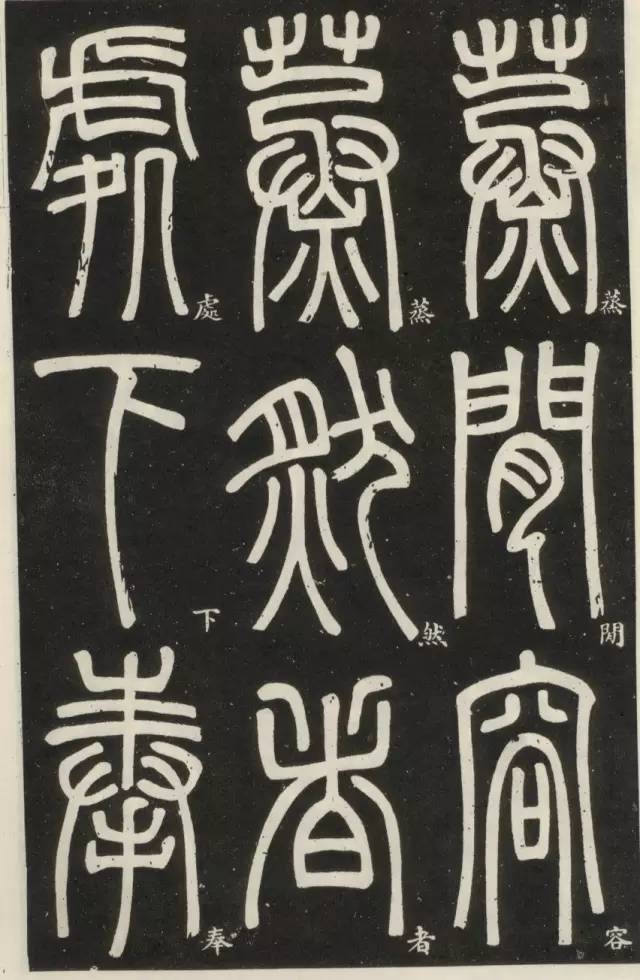 蒸閒容
蒸然者
處下奉